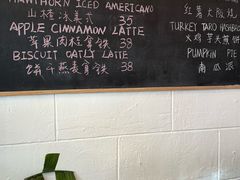 HAWTHORN ICED AMERICANO
山楂冰美式 35
APPLE CINNAMON LATTE
苹果肉桂拿铁 38
BISCUIT OATLY LATTE
饼干燕麦拿铁 38
红薯大阪烧
TURKEY TARO HASHBROWN
火鸡芋头薯饼
PUMPKIN PIE
南瓜派